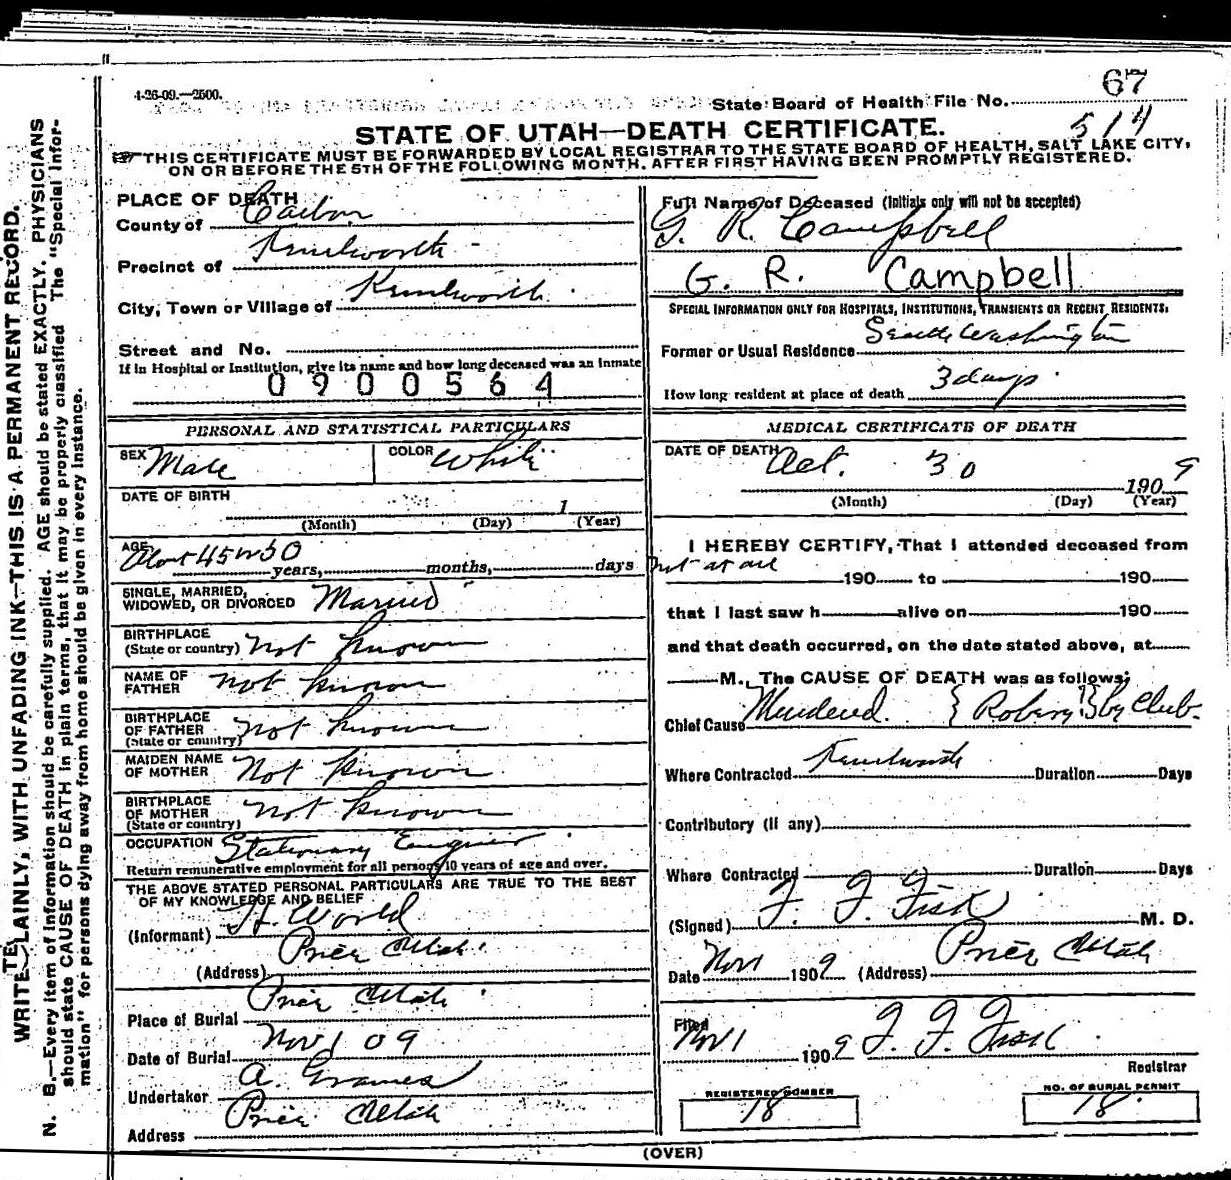 4-26-09.—2500.
State Board of Health File No. 67
514
STATE OF UTAH—DEATH CERTIFICATE.
THIS CERTIFICATE MUST BE FORWARDED BY LOCAL REGISTRAR TO THE STATE BOARD OF HEALTH, SALT LAKE CITY,
ON OR BEFORE THE 5TH OF THE FOLLOWING MONTH, AFTER FIRST HAVING BEEN PROMPTLY REGISTERED.
PLACE OF DEATH
County of Carbon
Precinct of Kenilworth
City, Town or Village of Kenilworth
Street and No.
If in Hospital or Institution, give its name and how long deceased was an inmate
0900564
PERSONAL AND STATISTICAL PARTICULARS
SEX Male
COLOR White
DATE OF BIRTH
1
(Month) (Day) (Year)
AGE About 45 or 50
years, months, days
SINGLE, MARRIED,
WIDOWED, OR DIVORCED Married
BIRTHPLACE
(State or country) Not Known
NAME OF
FATHER Not Known
BIRTHPLACE
OF FATHER
(State or country) Not Known
MAIDEN NAME
OF MOTHER Not Known
BIRTHPLACE
OF MOTHER
(State or country) Not Known
OCCUPATION Stationary Engineer
Return remunerative employment for all persons 10 years of age and over.
THE ABOVE STATED PERSONAL PARTICULARS ARE TRUE TO THE BEST
OF MY KNOWLEDGE AND BELIEF
(Informant) H. World
(Address) Price Utah
Place of Burial Price Utah
Date of Burial Nov 1 09
Undertaker A. Grames
Address Price Utah
Full Name of Deceased (Initials only will not be accepted)
G. R. Campbell
G. R. Campbell
SPECIAL INFORMATION ONLY FOR HOSPITALS, INSTITUTIONS, TRANSIENTS OR RECENT RESIDENTS.
Former or Usual Residence Seattle Washington
How long resident at place of death 3 days
MEDICAL CERTIFICATE OF DEATH
DATE OF DEATH Oct. 30 1909
(Month) (Day) (Year)
I HEREBY CERTIFY, That I attended deceased from
Not at all 190 to 190
that I last saw h alive on 190
and that death occurred, on the date stated above, at
M., The CAUSE OF DEATH was as follows:
Chief Cause Murdered. { Robery } by Club.
Where Contracted Kenilworth Duration Days
Contributory (if any)
Where Contracted Duration Days
(Signed) F. F. Fisk M. D.
Date Nov 1 1909 (Address) Price Utah
Filed Nov 1 1909 F. F. Fisk
Registrar
REGISTERED NUMBER
18
NO. OF BURIAL PERMIT
18
(OVER)
WRITE PLAINLY, WITH UNFADING INK—THIS IS A PERMANENT RECORD.
N. B.—Every item of information should be carefully supplied. AGE should be stated EXACTLY. PHYSICIANS
should state CAUSE OF DEATH in plain terms, that it may be properly classified The "Special Infor-
mation" for persons dying away from home should be given in every instance.